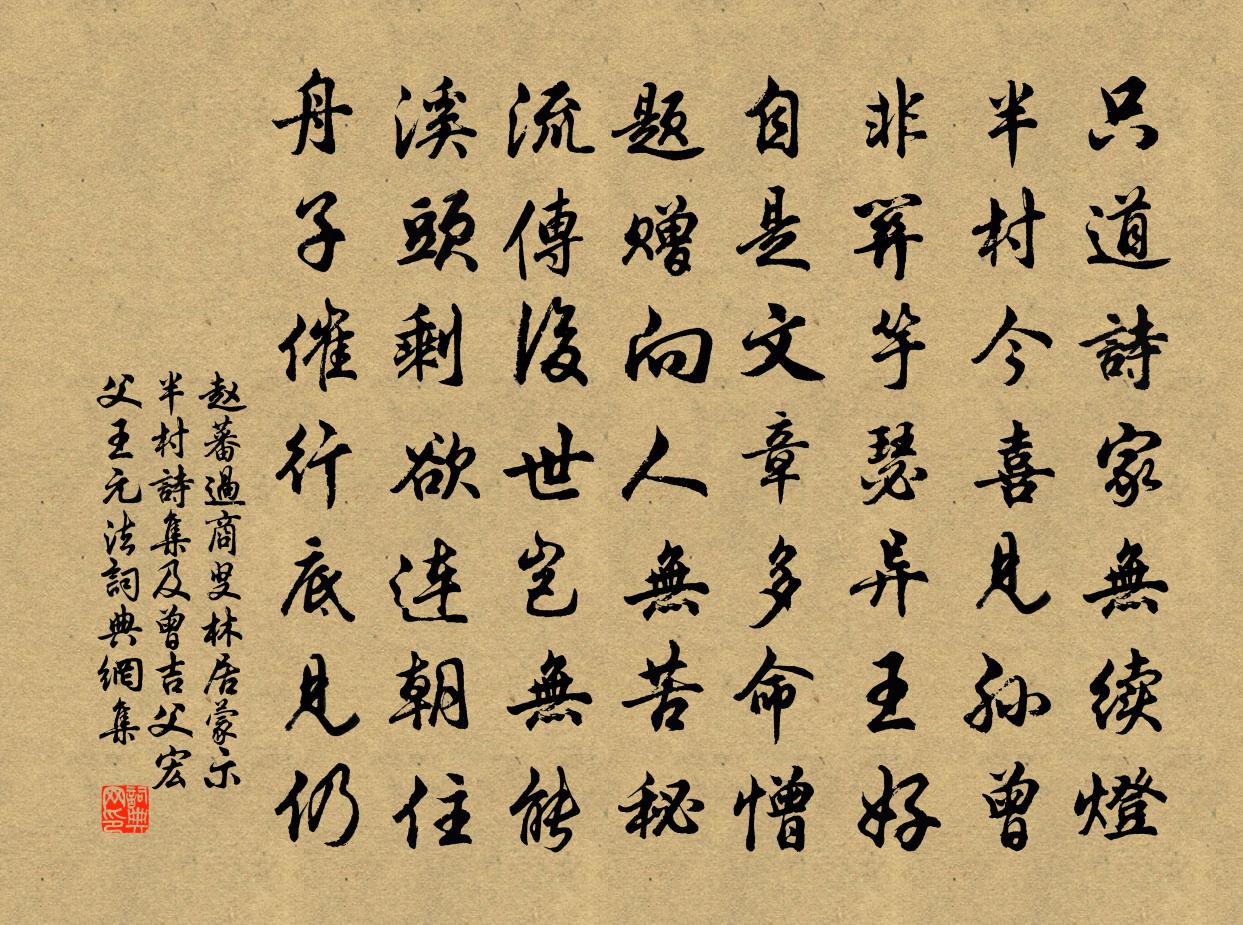 只道詩家無续燈
半村今喜見孙曾
非關竽瑟异王好
自是文章多命憎
题赠向人無苦秘
流傳後世岂無能
溪頭剩欲連朝住
舟子催行底見仍
赵蕃過商叟林居蒙示
半村詩集及曾吉父宏
父王元法詞典網集
詞典网印